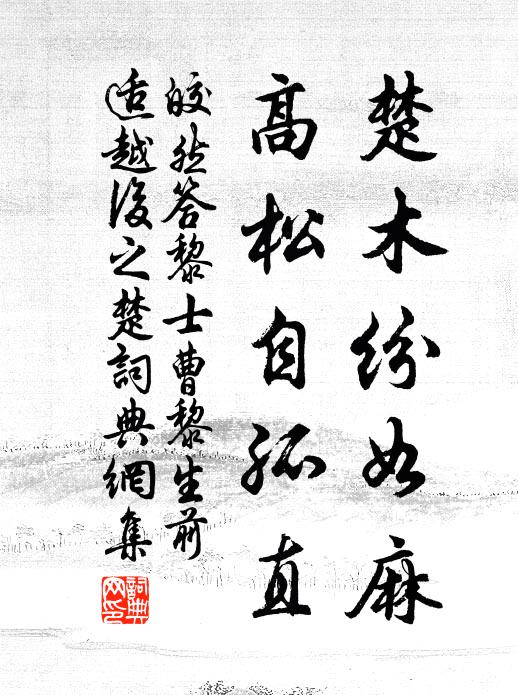 楚木紛如麻
高松自孤直
皎然答黎士曹黎生前
适越後之楚詞典網集
詞典網印